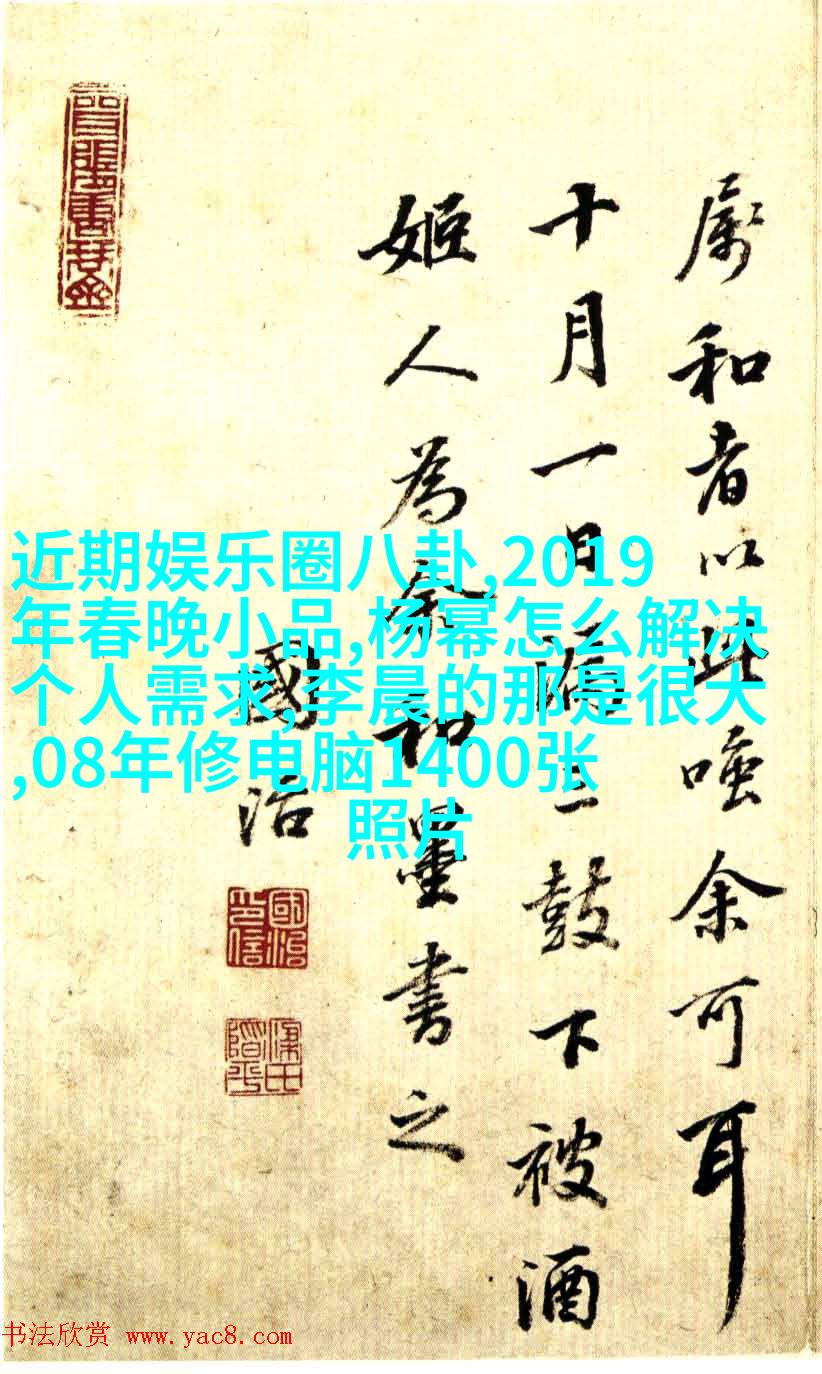 属和者以此嗤余可耳
十月一日漏三鼓下被酒
姬人為余和墨書之
國治
國治
印信
近期娱乐圈八卦,2019
年春晚小品,杨幂怎么解决
个人需求,李晨的那是很大
,08年修电脑1400张
照片
书法欣赏 www.yac8.com